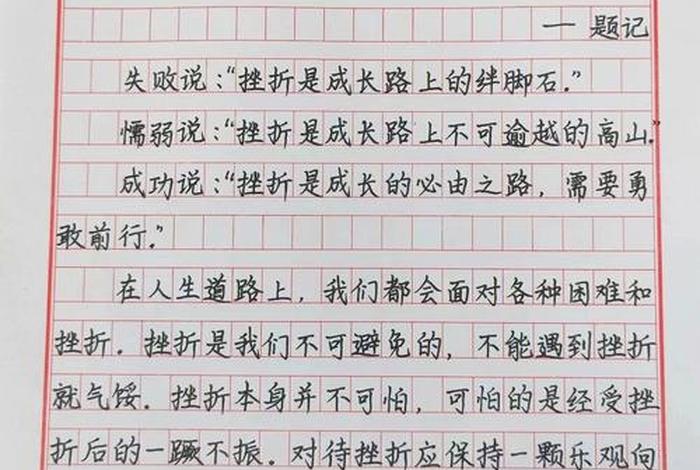 — 题记
失败说:“挫折是成长路上的绊脚石.”
懦弱说:“挫折是成长路上不可逾越的高山.”
成功说:“挫折是成长的必由之路,需要勇
敢前行.”
在人生道路上,我们都会面对各种困难和
挫折.挫折是我们不可避免的,不能遇到挫折
就气馁.挫折本身并不可怕,可怕的是经受挫
折后的一蹶不振.对待挫折应保持一颗乐观向